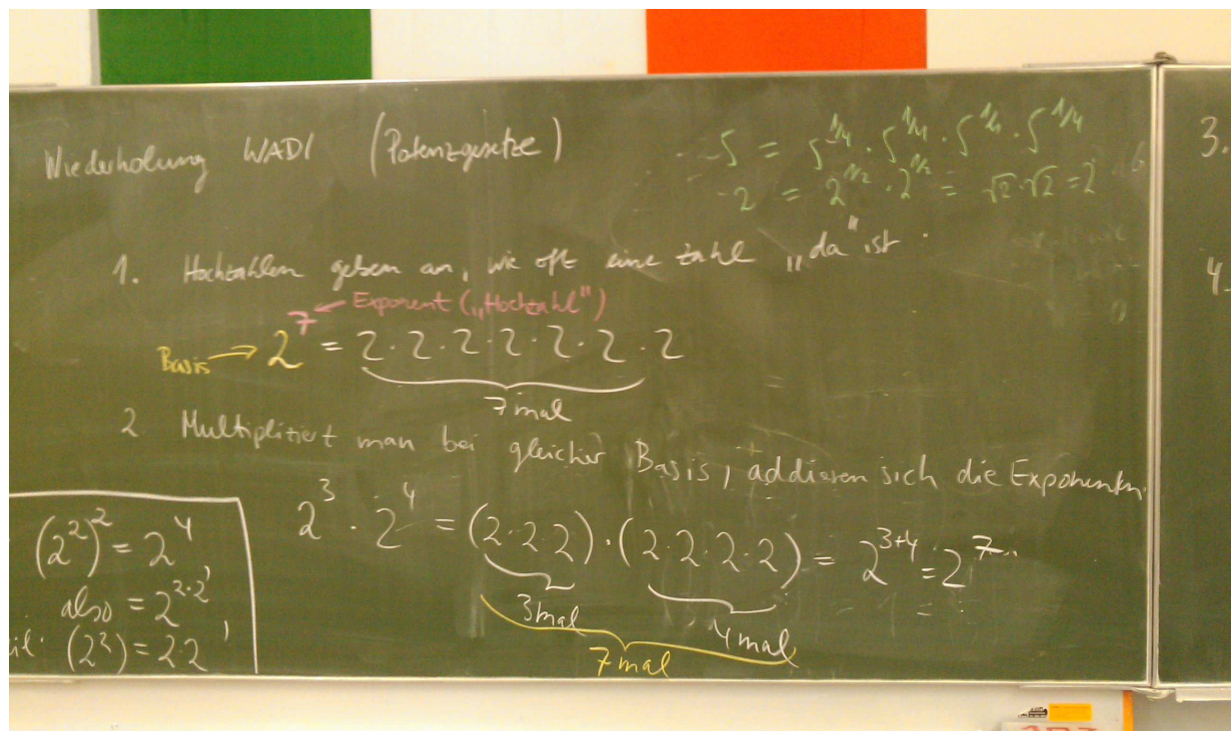 Wiederholung WADI (Potenzgesetze)
5 = 5^{1/4} · 5^{1/4} · 5^{1/4} · 5^{1/4}
2 = 2^{1/2} · 2^{1/2} = √2 · √2 = 2
1. Hochzahlen geben an, wie oft eine Zahl „da" ist
Exponent („Hochzahl")
Basis → 2^7 = 2 · 2 · 2 · 2 · 2 · 2 · 2
7 mal
2 Multipliziert man bei gleicher Basis, addieren sich die Exponenten.
2^3 · 2^4 = (2·2·2) · (2·2·2·2) = 2^{3+4} = 2^7
3mal
4mal
7mal
(2^2)^2 = 2^4
also = 2^{2·2}
(2^2) = 2·2
3.
4.